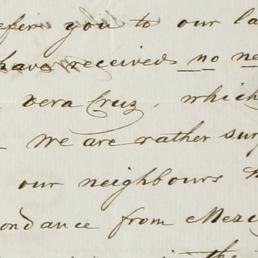 refer you to our la
have received no ne
Vera Cruz, which
We are rather sur
our neighbours h
ondance from Mexi
in the